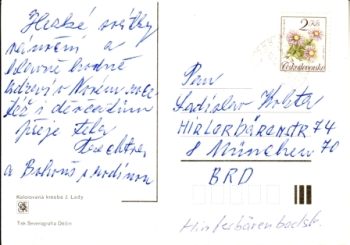 Hezké svátky
vánoční a
hlavně hodně
zdraví v Novém roce
též i děvčatům
přeje teta
a Bohouš s rodinou
Kolorovaná kresba J. Lady
Tisk Severografia Děčín
2 Kčs
Československo
Pan
Ladislav Kolsta
Hinlerbärenstr 74
8 München 70
BRD
Hinterbärenbadstr.